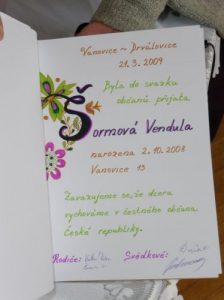 Vanovice ~ Drválovice
21. 3. 2009
Byla do svazku
občanů přijata
Šormová Vendula
narozena 2. 10. 2008
Vanovice 13
Zavazujeme se, že dceru
vychováme v čestného občana
České republiky.
Rodiče: Svědkové: